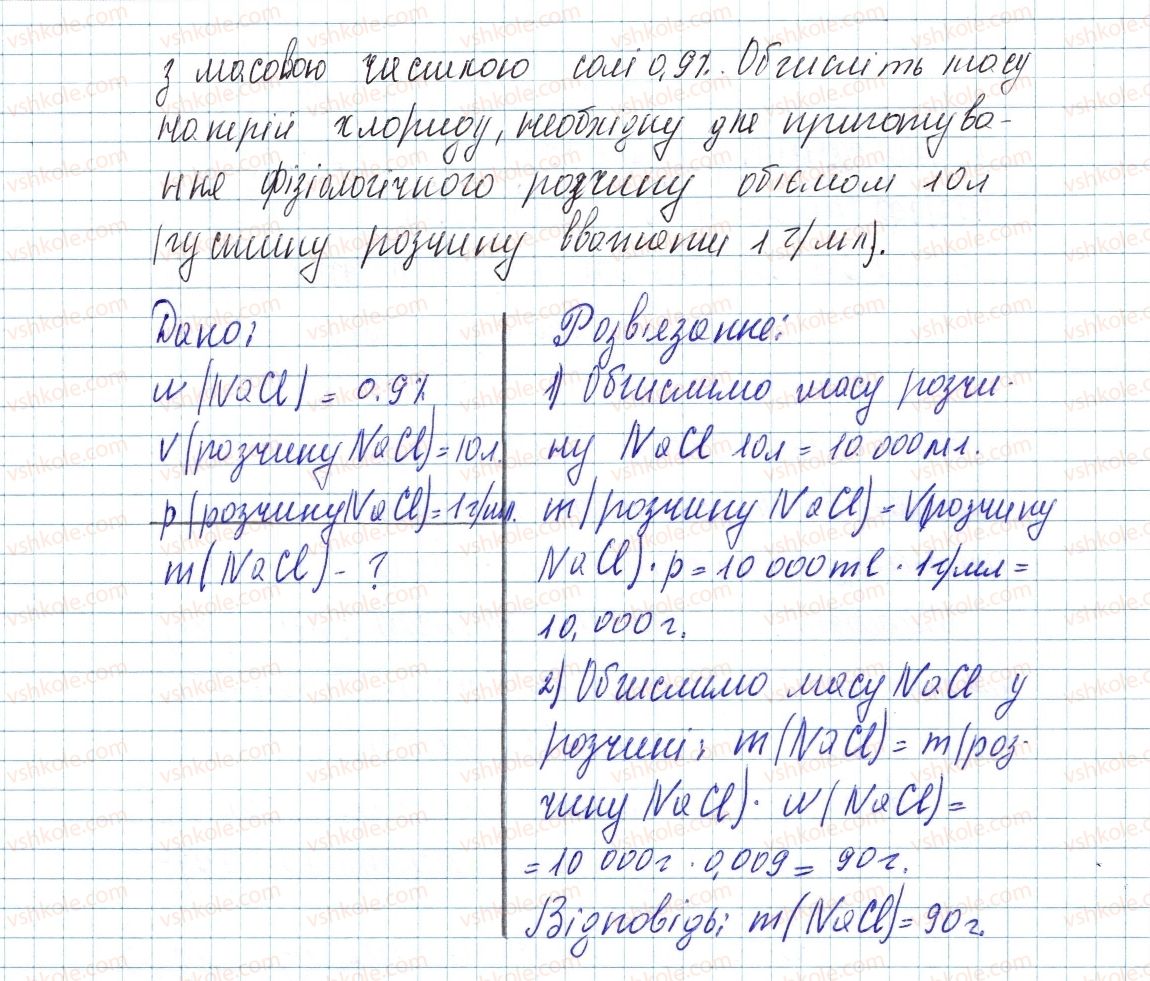 з масовою часткою солі 0,9%. Обчисліть масу
натрій хлориду, необхідну для приготува-
ння фізіологічного розчину об'ємом 10л
(густину розчину вважати 1 г/мл).
Дано:
w(NaCl) = 0.9%
V(розчину NaCl)=10л.
p(розчину NaCl)=1г/мл.
m(NaCl) - ?
Розв'язання:
1) Обчислимо масу розчи-
ну NaCl 10л = 10.000мл.
m(розчину NaCl)= V(розчину
NaCl) · p = 10 000ml · 1г/мл =
10.000г.
2) Обчислимо масу NaCl у
розчині: m(NaCl)= m(роз-
чину NaCl) · w(NaCl)=
= 10 000г · 0,009 = 90г.
Відповідь: m(NaCl)= 90г.
vshkole.com